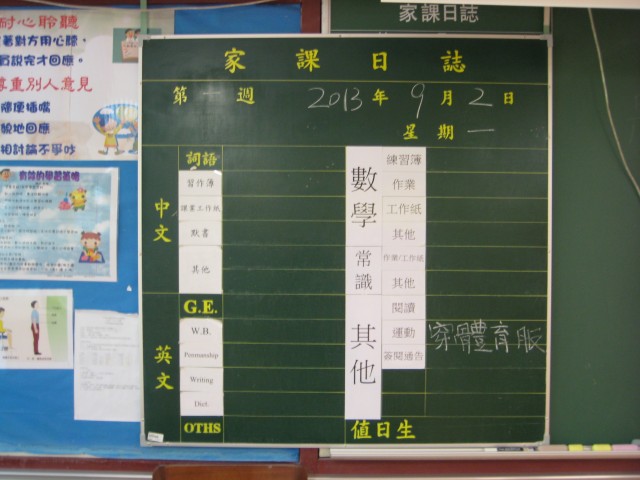 耐心聆聽
著對方用心聽，
說完才回應。
尊重別人意見
隨便插嘴
貌地回應
相討論不爭吵
有效的學習策略
家課日誌
家課日誌
第一週 2013年9月2日
星期一
中文
詞語
習作簿
課業工作紙
默書
其他
G.E.
英文
W.B.
Penmanship
Writing
Dict.
OTHS
數學
練習簿
作業
工作紙
其他
常識
作業/工作紙
其他
其他
閱讀
運動 穿體育服
簽閱通告
值日生